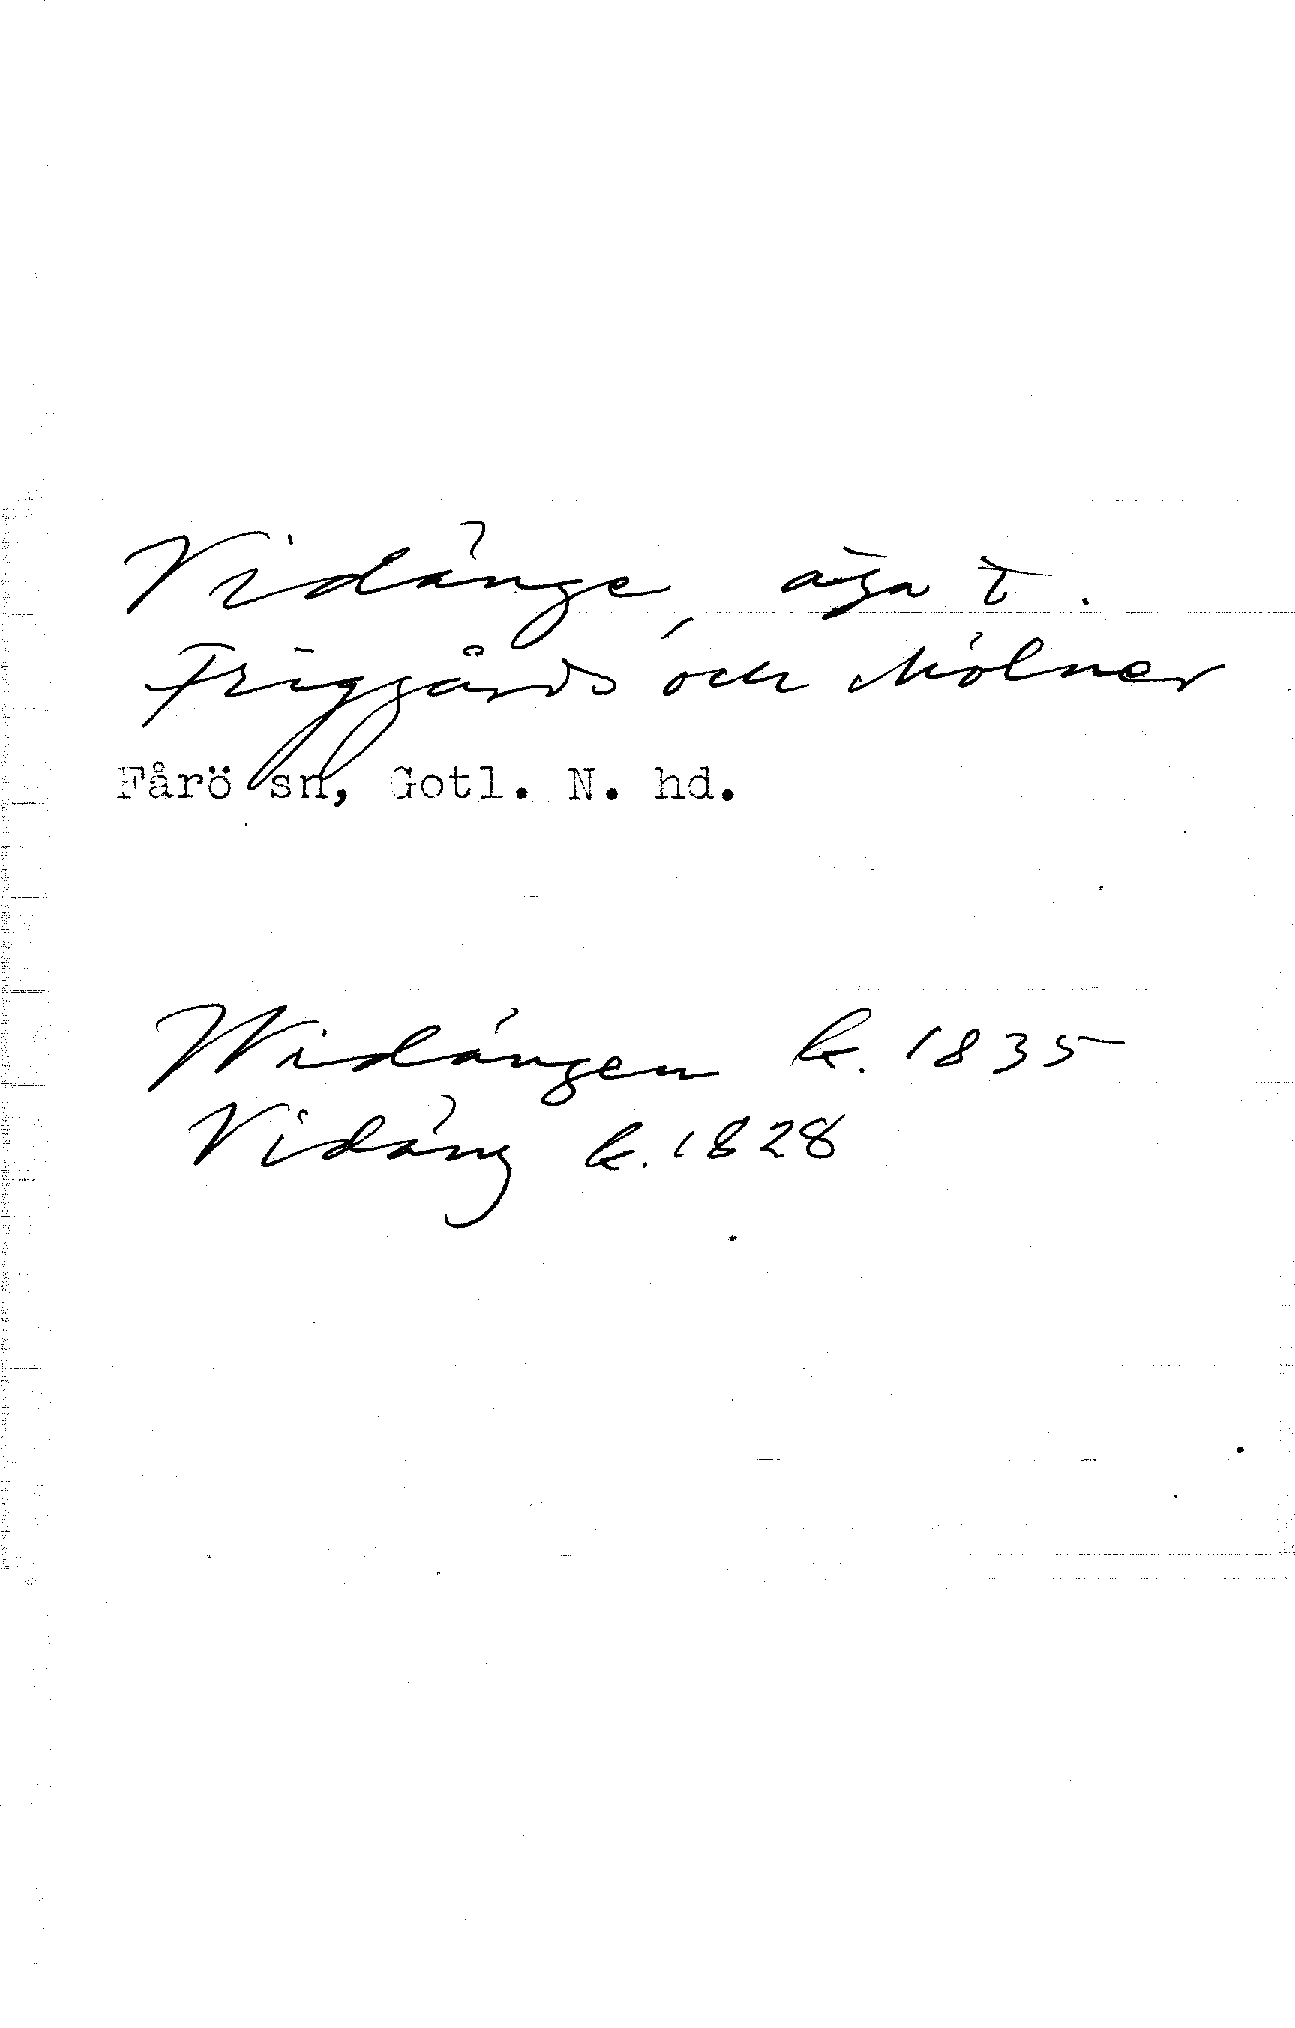 Vidänge, äga t.
Friggårds och Mölner
Fårö sn, Gotl. N. hd.
Widängen k. 1835
Vidäng k. 1828